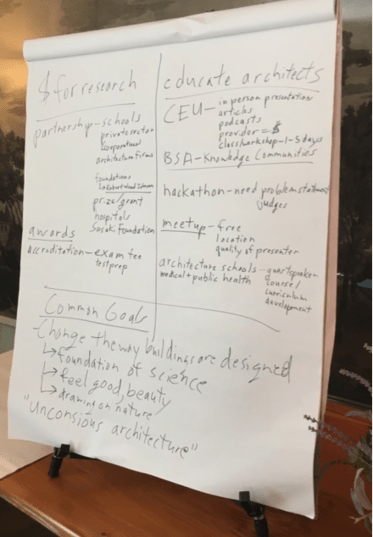 $ for research
partnership - schools
private sector
corporations
architecture firms
foundations
prize/grant
hospitals
Sasaki foundation
awards
accreditation - exam fee
test prep
educate architects
CEU - in person presentation
articles
podcasts
provider = $
class/workshop - 1-5 days
BSA - Knowledge Communities
hackathon - need problem statement
judges
meetup - free
location
quality of presenter
architecture schools - guest speaker
medical + public health
course/
curriculum
development
Common Goals
- Change the way buildings are designed
↳ foundation of science
↳ feel good, beauty
↳ drawing on nature
"unconsious architecture"